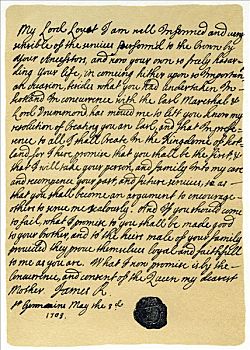 My Lord Lovat I am well Informed and very
sensible of the services perform'd to the Crown by
your Ancestors, and now your own so truly hazar-
ding your life, in comeing hither upon so Important
an occasion, besides what you had undertaken In
Scotland In concurrence with the Earl Mareshal &
Lord Drummond has moved me to let you know my
resolution of Creating you an Earl, and that In prefe-
rence to all I shall Create In the Kingdome of Scot-
land for I here promise that you shall be the first &
that I will take your person, and family Into my care
and recompence your past and future services, so as
that you shall become an argument to encourage
others to serve me zealously. And if you should come
to fail, what I promise to you shall be made good
to your brother, and to the heirs male of your family
provided they prove themselves loyal and faithfull
to me as you are. What I now promise is by the
Concurrence, and consent of the Queen my dearest
Mother James R
St Germains May the 3d
1703.